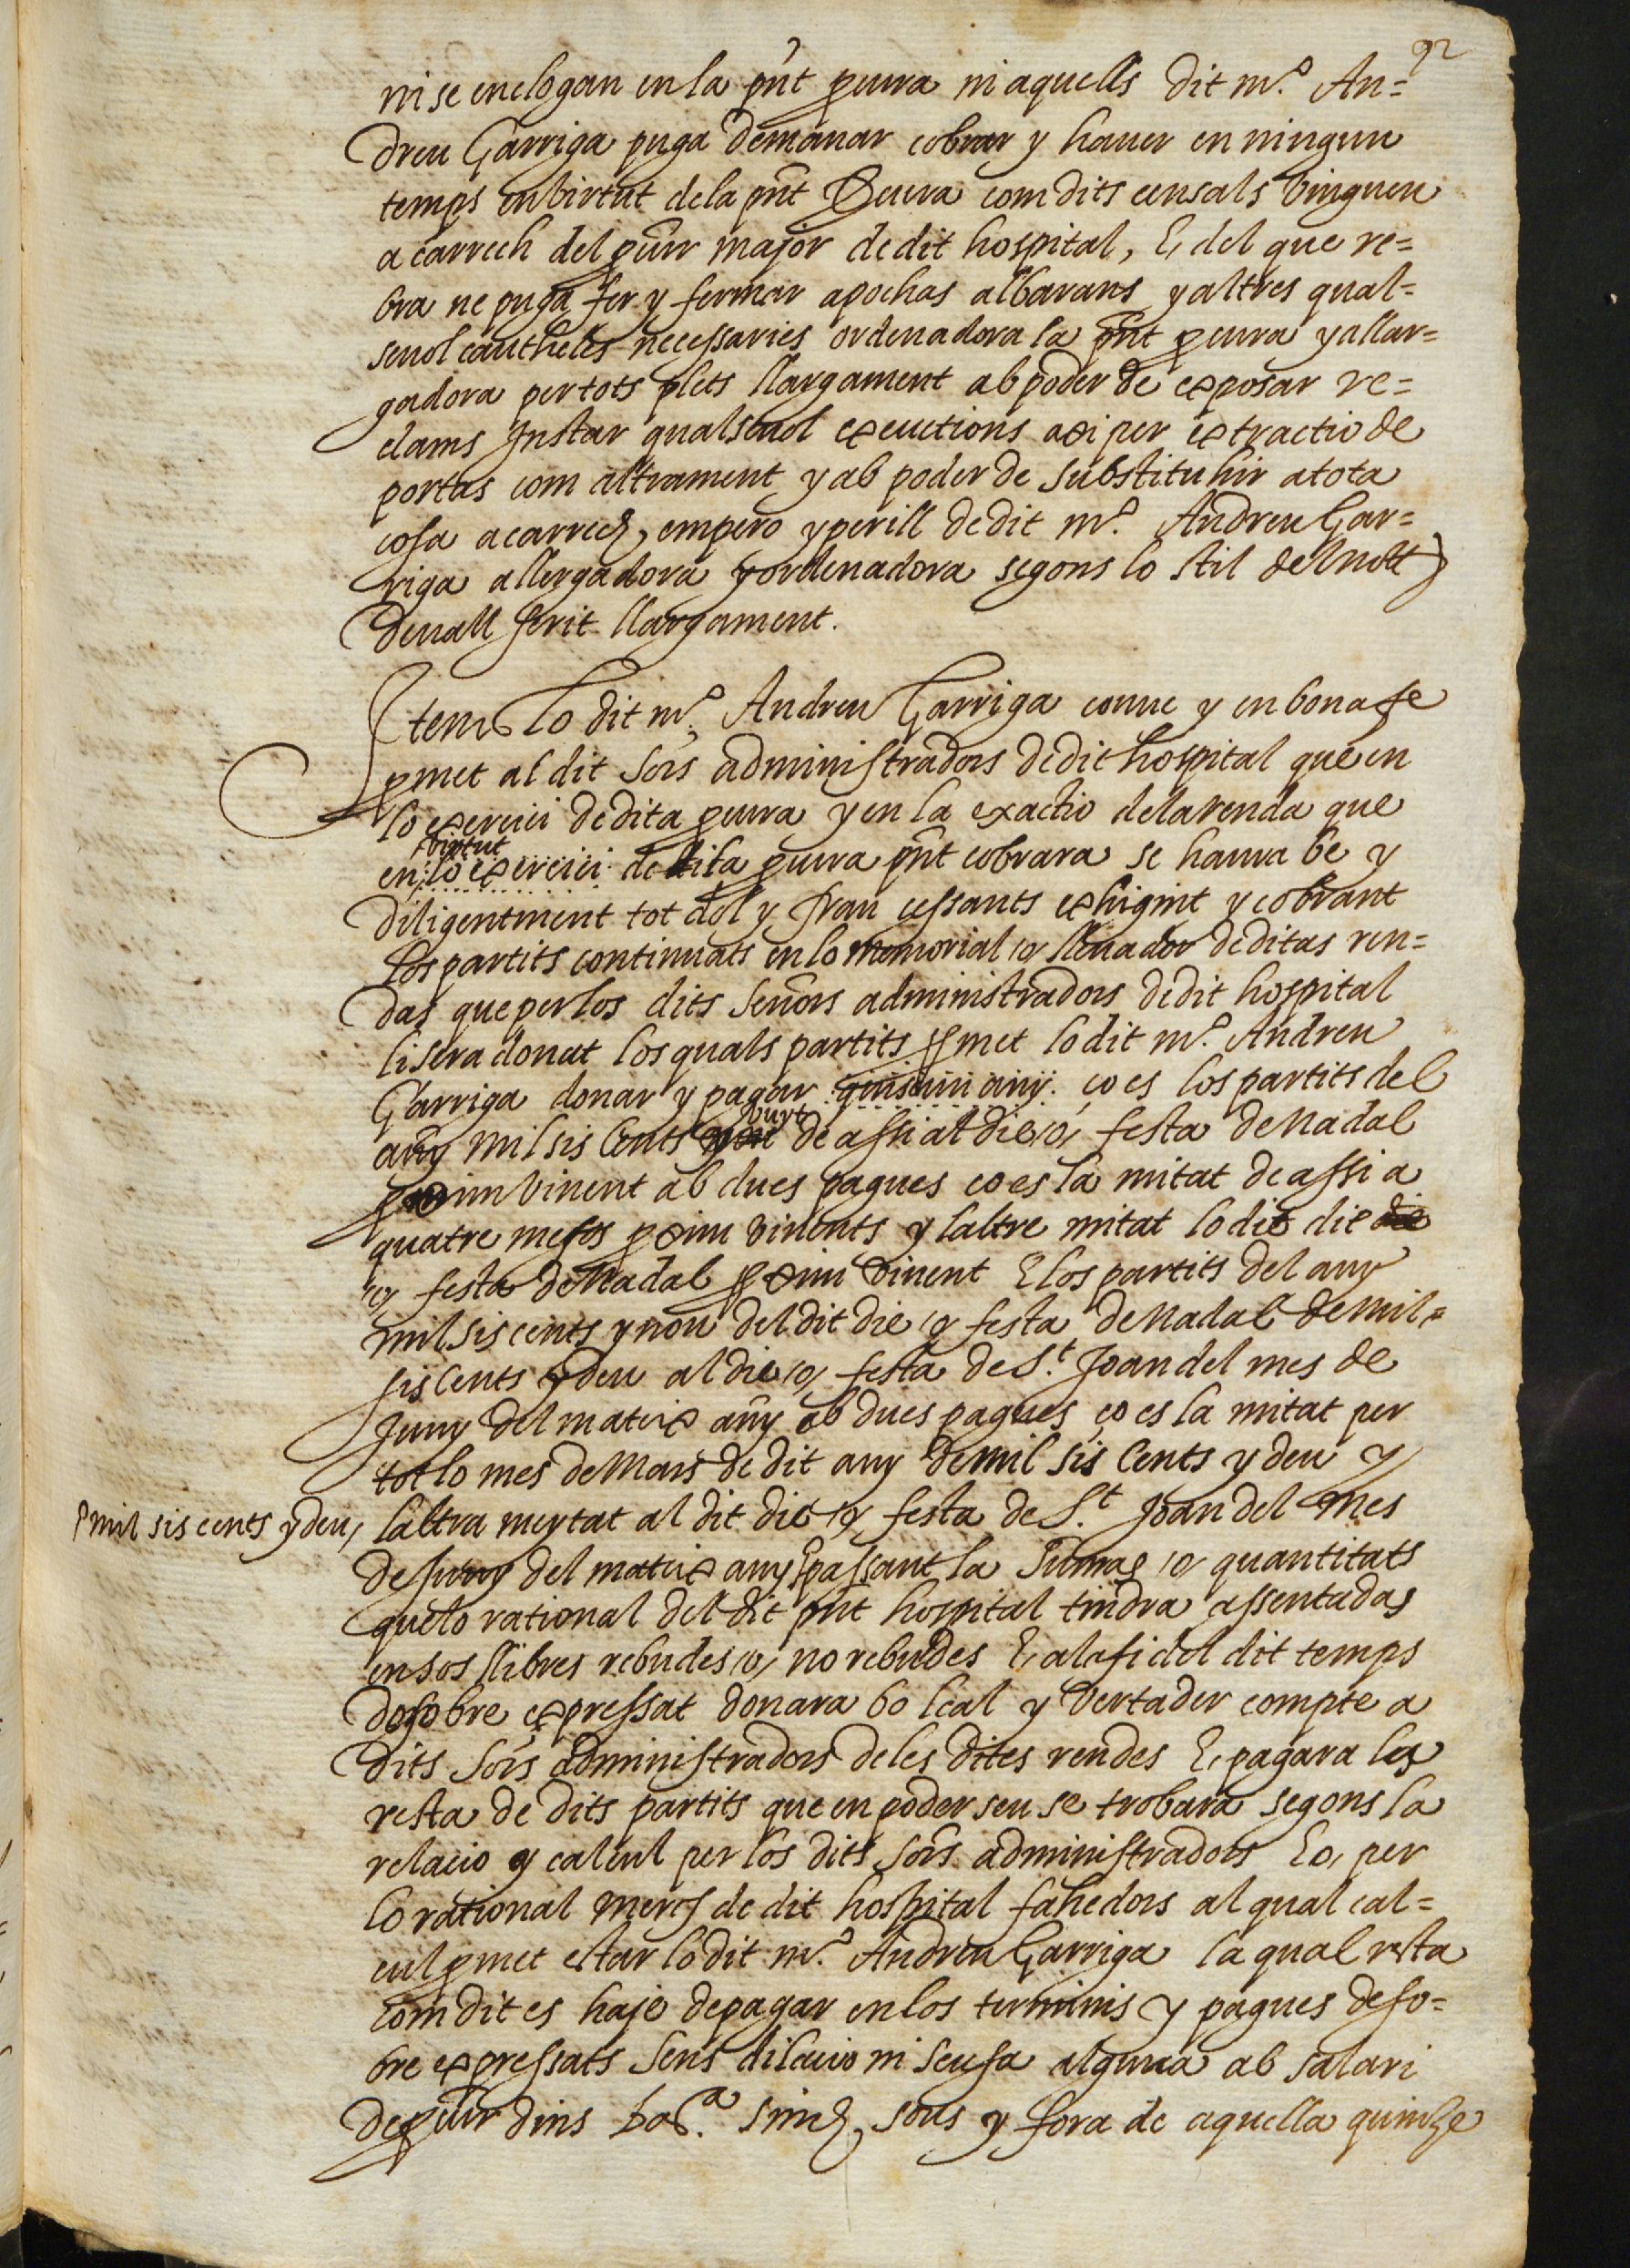 92
ni se enclogan en la pñt ꝓcura ni aquells dit mº. An=
dreu Garriga puga demanar cobrar y hauer en ningun
temps en virtut de la pñt ꝓcura com dits censals vinguen
a carrech del ꝓcurr major de dit hospital, E, del que re=
bra ne puga fer y fermar apochas albarans y altres qual=
seuol cautheles necessaries ordenadora la pñt ꝓcura y allar=
gadora per tots plets llargament ab poder de exposar re=
clams Instar qualseuol executions axi per extractio de
portas com altrament y ab poder de substituhir a tota
cosa a carrech, empero y perill de dit mº. Andreu Gar=
riga allergadora y ordenadora segons lo stil del nott
deuall scrit llargament.
Item lo dit mº. Andreu Garriga conue y en bona fe
ꝓmet al dit Sors administradors de dit hospital que en
lo exercici de dita ꝓcura y en la exactio de la renda que
virtut
en lo exercici de dita ꝓcura pñt cobrara se haura be y
diligentment tot dol y frau cessants exhigint y cobrant
los partits continuats en lo memorial /o/ lleuador de ditas ren=
das que per los dits senors administradors de dit hospital
li sera donat los quals partits ꝓmet lo dit mº. Andreu
Garriga donar y pagar quiscun any. ço es los partits del
vuyt
any mil sis Cents y nou de assi al die /o/ festa de Nadal
ꝓxim vinent ab dues pagues ço es la mitat de assi a
quatre mesos ꝓxim vinents y laltre mitat lo dit die die
/o/ festa de Nadal ꝓxim vinent E los partits del any
mil sis cents y nou del dit die /o/ festa de Nadal de mil=
sis Cents y deu al die /o/ festa de S.t Joan del mes de
Juny del mateix any ab dues pagues ço es la mitat per
tot lo mes de Mars de dit any de mil sis Cents y deu y
mil sis cents y deu, laltra meytat al dit die /o/ festa de S.t Joan del mes
de Juny del mateix any passant la Sumas /o/ quantitats
que lo rational del dit pñt hospital tindra assentadas
en sos llibres rebudes /o/ no rebudes E, a la fi del dit temps
desobre expressat donara bo leal y vertader compte a
dits Sors administradors de les dites rendes E, pagara les
resta de dits partits que en poder seu se trobara segons la
relacio y calcul per los dits Sors administradors E o, per
lo rational de dit hospital fahedors al qual cal=
cul ꝓmet estar lo dit mº. Andreu Garriga la qual resta
com dit es haje de pagar en los terminis y pagues deso=
bre expressats sens dilacio ni scusa alguna ab salari
de ꝓcur dins Barª. sinch, sous y fora de aquella quinse